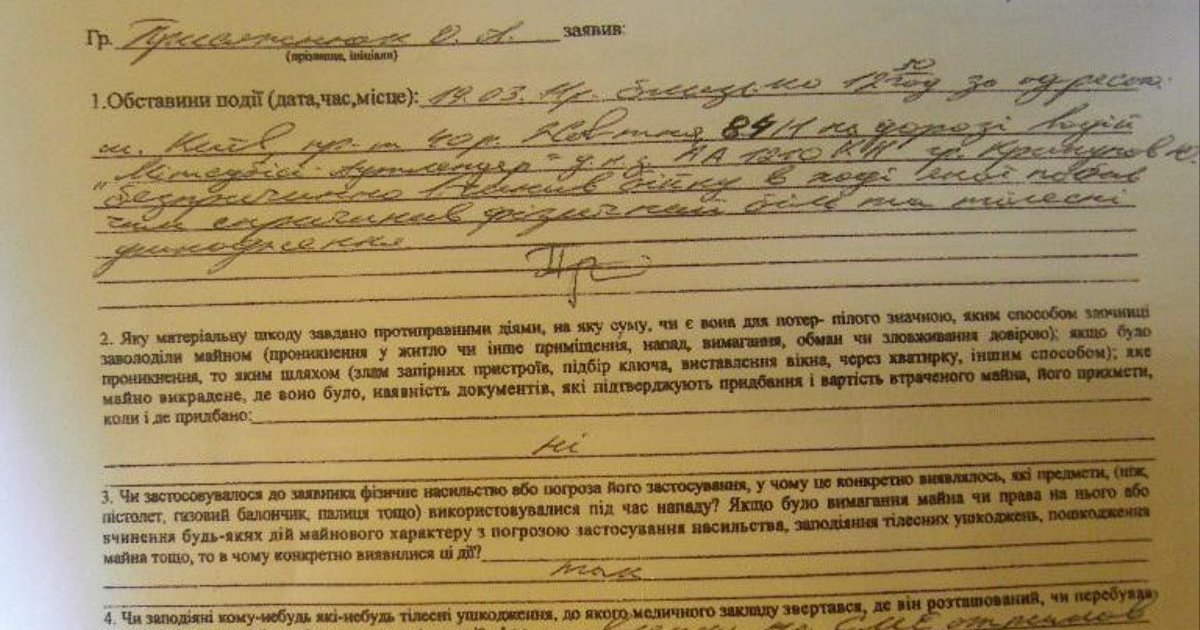 Гр. О. А. заявив:
(прізвище, ініціали)
1.Обставини події (дата,час,місце): 19.03. близько 12 50 год за адресою
м. Київ пр-т 40р. Жовтня 84 на дорозі водій
" Мітсубісі Аутлендер " д.н.з. АА 1210 гр.
безпричинно вчинив бійку в ході якої
чим спричинив фізичний біль та тілесні
ушкодження
2. Яку матеріальну шкоду завдано протиправними діями, на яку суму, чи є вона для потер- пілого значною, яким способом злочинці
заволоділи майном (проникнення у житло чи інше приміщення, напад, вимагання, обман чи зловживання довірою); якщо було
проникнення, то яким шляхом (злам запірних пристроїв, підбір ключа, виставлення вікна, через кватирку, іншим способом); яке
майно викрадене, де воно було, наявність документів, які підтверджують придбання і вартість втраченого майна, його прикмети,
коли і де придбано:
ні
3. Чи застосовувалося до заявника фізичне насильство або погроза його застосування, у чому це конкретно виявлялось, які предмети, (ніж,
пістолет, газовий балончик, палиця тощо) використовувалися під час нападу? Якщо було вимагання майна чи права на нього або
вчинення будь-яких дій майнового характеру з погрозою застосування насильства, заподіяння тілесних ушкоджень, пошкодження
майна тощо, то в чому конкретно виявилися ці дії?
так
4. Чи заподіяні кому-небудь які-небудь тілесні ушкодження, до якого медичного закладу звертався, де він розташований, чи перебував